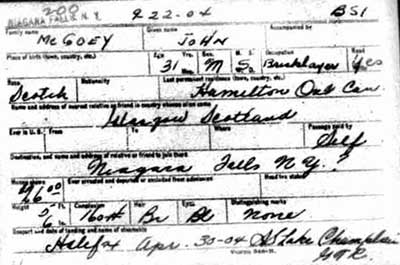 200
NIAGARA FALLS, N. Y. 922-04 BSI
Family name Given name Accompanied by
McGOEY JOHN
Place of birth (town, country, etc.) Age Yrs. Sex M. S. Occupation Read
31 M S Bricklayer Yes
Race Nationality Last permanent residence (town, country, etc.)
Scotch Hamilton Ont Can.
Name and address of nearest relative or friend in country whence alien came
Glasgow Scotland
Ever in U.S. From To Where Passage paid by
Self
Destination, and name and address of relative or friend to join there
Niagara Falls N.Y.
Money shown Ever arrested and deported or excluded from admission Head tax status
Height Ft. Complexion Hair Eyes Distinguishing marks
5 6 In. Br Bl None
Seaport and date of landing and name of steamship
Halifax Apr. 30-04 SS Lake Champlain
GTR.